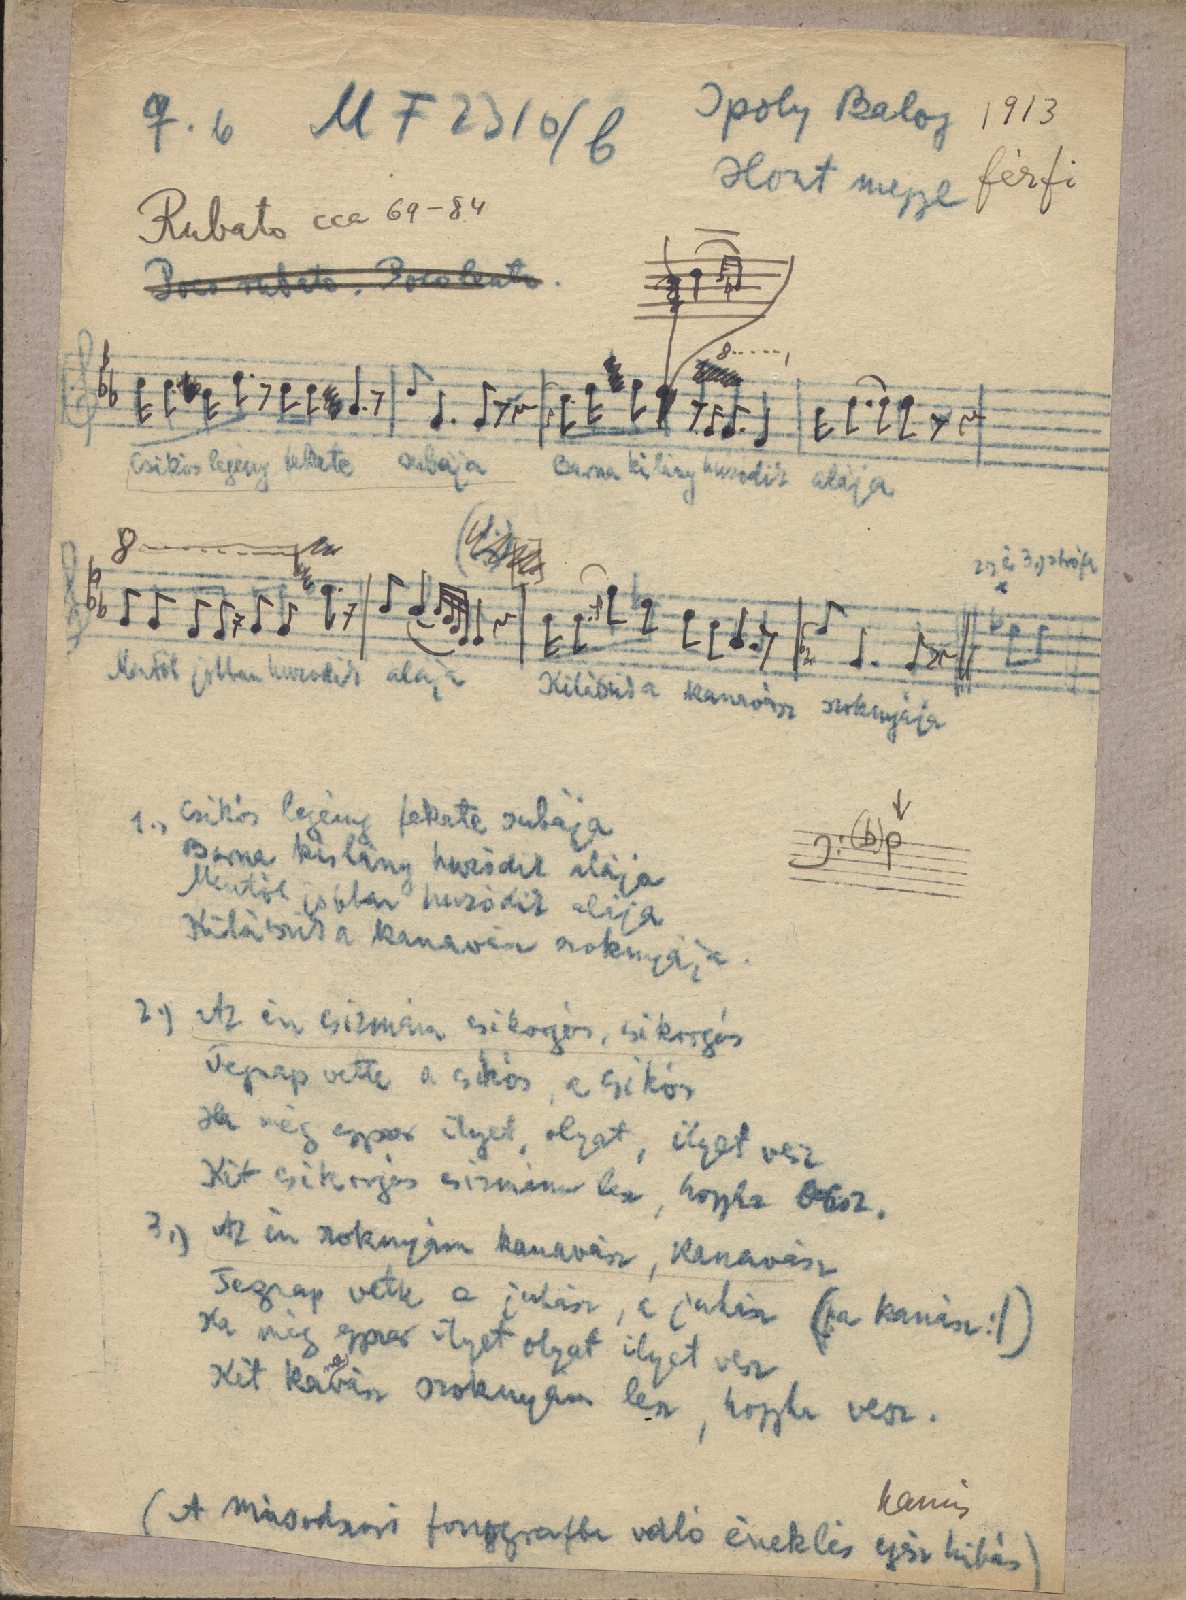 7. b MF 2310/b Ipoly Balog 1913
Hont megye férfi
Rubato cca 69-84
Poco rubato. Poco lento.
8
Csikós legény fekete subája Barna kislány huzódik alája
8
2., és 3., strófa
Mentöl jobban huzódik alája Kilátszik a kanavász szoknyája
1., Csikós legény fekete subája
Barna kislány huzódik alája
Mentöl jobban huzódik alája
Kilátszik a kanavász szoknyája.
2.) Az én csizmám csikorgós, csikorgós
Tegnap vette a csikós, a csikós
Ha még egypar ilyet, olyat, ilyet vesz
Két csikorgós csizmám lesz, hogyha vesz.
3.,) Az én szoknyám kanavász, kanavász
Tegnap vette a juhász, a juhász (: a kanász :)
Ha még egypar ilyet olyat ilyet vesz
Két kanavász szoknyám lesz, hogyha vesz.
hamis
(A másodszori fonografba való éneklés egész hibás)